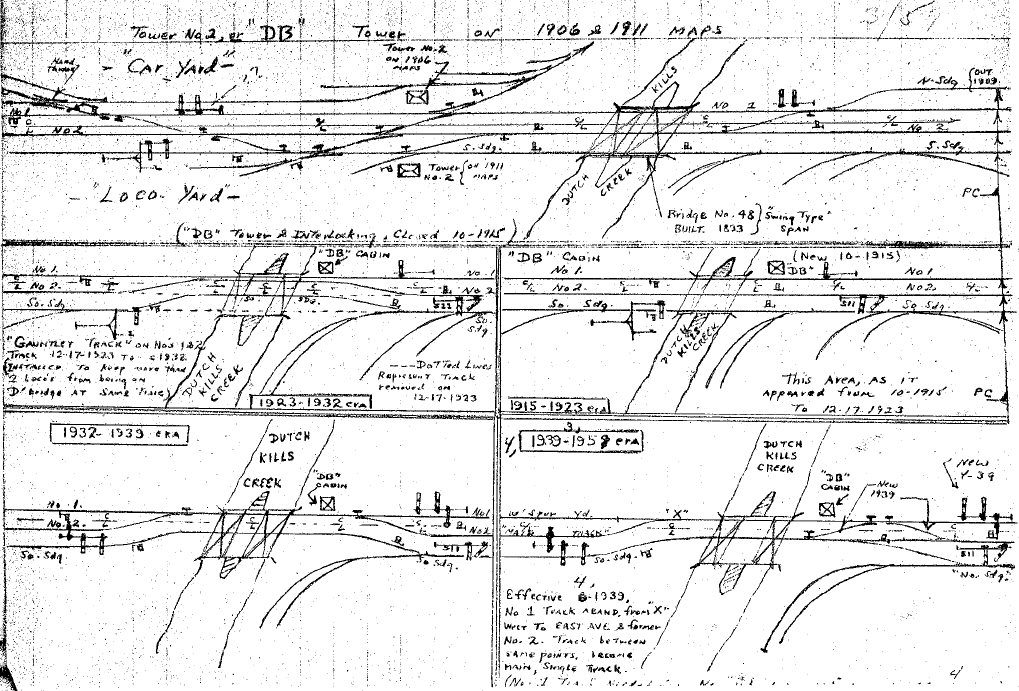 3/59
Tower No. 2, or "DB" Tower on 1906 & 1911 MAPS
Hand Thrown
- "Car Yard" -
Tower No. 2
on 1906
MAPS
KILLS
N. Sdg. {OUT 1909
No 1
No 1
No 2.
No 2.
S. Sdg.
S. Sdg.
- "Loco. Yard" -
Tower {on 1911
No. 2 { MAPS
DUTCH CREEK
PC
Bridge No. 48} "Swing Type"
BUILT 1893 } SPAN
("DB" Tower & Interlocking, Closed 10-1915)
"DB" CABIN
No 1.
No 2.
So. Sdg.
No. 1
No 2
So. Sdg.
511
"Gauntlet Track" on No's 1 & 2
Track 12-17-1923 To c 1932.
(Installed To Keep more than
2 Loco's from being on
D' bridge AT SAME Time)
DUTCH
KILLS
CREEK
--- Dotted Lines
Represent Track
removed on
12-17-1923
1923-1932 era
"DB" CABIN
(New 10-1915)
"DB"
No 1.
No 2.
So. Sdg.
No 1
No 2.
So. Sdg.
511
DUTCH
KILLS
CREEK
This Area, AS IT
appeared from 10-1915
To 12-17-1923
PC
1915-1923 era
1932-1939 era
DUTCH
KILLS
CREEK
"DB"
CABIN
No 1.
No. 2.
So. Sdg.
No 1
No 2
So Sdg.
511
3,
4, 1939-1958 era
DUTCH
KILLS
CREEK
"DB"
CABIN
New
1939
New
Y-39
W' Spur Yd.
"X"
"Main Track"
So. Sdg.
511
"No. Sdg."
4,
Effective 6-1939,
No 1 Track ABAND. from "X"
West To EAST AVE & former
No. 2. Track between
same points, became
main, Single Track.
4